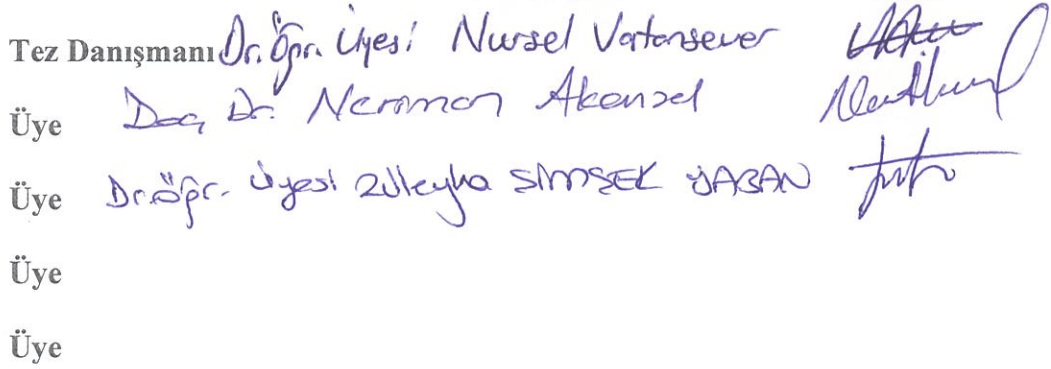 Tez Danışmanı Dr. Öğr. Üyesi Nursel Vatansever
Üye Doç. Dr. Neriman Akansel
Üye Dr. Öğr. Üyesi Züleyha SİMSEK YABAN
Üye
Üye